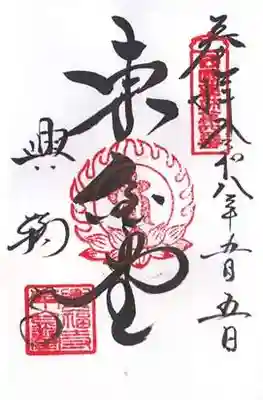 奉拝 令和八年五月五日
東金堂
興福寺